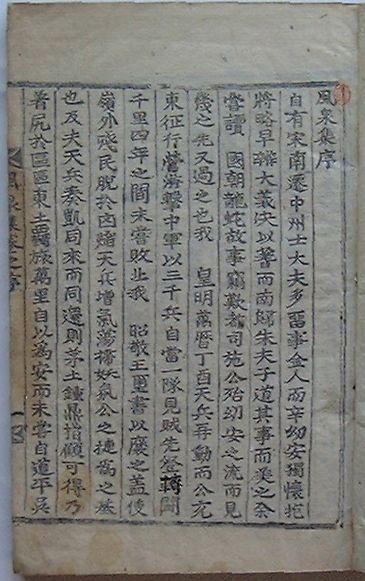 風泉集序
自有宋南遷中州士大夫多畱事金人而辛幼安獨懷抱
將略早辦大義決以耆而南歸朱夫子道其事而羙之余
嘗讀 國朝龍蛇故事竊歎若司施公殆幼安之流而見
幾之先又過之也我 皇明萬曆丁酉天兵再動而公充
東征行營游擊中軍以三千兵自當一隊見賊先登轉鬪
千里四年之間未嘗敗北我 昭敬王璽書以慶之盖使
嶺外殘民脫於凶焰天兵增氣蕩掃妖氛公之捷爲之基
也及夫天兵奏凱同來而同還則茅土鍾鼎指顧可得乃
著尻於區區東土羈旅萬里自以爲安而未嘗自道平吳
風泉集卷之序